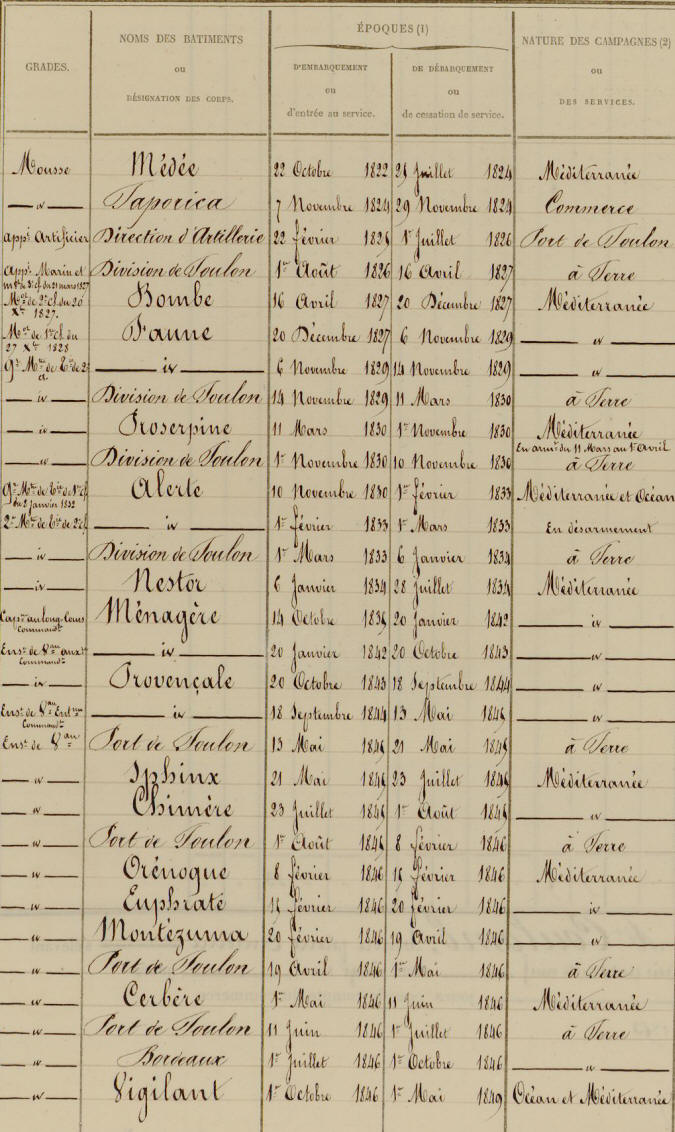 GRADES.
NOMS DES BATIMENTS
ou
DÉSIGNATION DES CORPS.
ÉPOQUES (1)
D'EMBARQUEMENT
ou
d'entrée au service.
DE DÉBARQUEMENT
ou
de cessation de service.
NATURE DES CAMPAGNES (2)
ou
DES SERVICES.
Mousse Médée 22 Octobre 1822 25 Juillet 1824 Méditerranée
— id — Taporica 7 Novembre 1824 29 Novembre 1824 Commerce
App.ti Artificier Direction d'Artillerie 22 février 1825 1er Juillet 1826 Port de Toulon
App.ti Marin et Division de Toulon 1er Août 1826 16 Avril 1827 à Terre
mt de 3e cl. du 21 mars 1827
Mot de 2e cl. du 20 Bombe 16 Avril 1827 20 Décembre 1827 Méditerranée
Xbre 1827.
Mot de 1re cl. du Faune 20 Décembre 1827 6 Novembre 1829 — id —
27 Xbre 1828
— id — 6 Novembre 1829 14 Novembre 1829 — id —
— id — Division de Toulon 14 Novembre 1829 11 Mars 1830 à Terre
— id — Proserpine 11 Mars 1830 1er Novembre 1830 Méditerranée
En armt du 11 Mars au 1er Avril
— id — Division de Toulon 1er Novembre 1830 10 Novembre 1830 à Terre
Alerte 10 Novembre 1830 1er février 1833 Méditerranée et Océan
du 2 janvier 1832
— id — 1er février 1833 1er Mars 1833 En désarmement
— id — Division de Toulon 1er Mars 1833 6 Janvier 1834 à Terre
— id — Nestor 6 Janvier 1834 28 Juillet 1834 Méditerranée
Capne au long-cours Ménagère 14 Octobre 1835 20 Janvier 1842 — id —
Commandt
Ense de Vau auxre — id — 20 Janvier 1842 20 Octobre 1843 — id —
Commandt
— id — Provençale 20 Octobre 1843 18 Septembre 1844 — id —
Ense de Vau — id — 18 Septembre 1844 13 Mai 1845 — id —
Commandt
Ense de Vau Port de Toulon 13 Mai 1845 21 Mai 1845 à Terre
— id — Sphinx 21 Mai 1845 23 Juillet 1845 Méditerranée
— id — Chimère 23 Juillet 1845 1er Août 1845 — id —
— id — Port de Toulon 1er Août 1845 8 février 1846 à Terre
— id — Orénoque 8 février 1846 15 février 1846 Méditerranée
— id — Euphrate 15 février 1846 20 février 1846 — id —
— id — Montézuma 20 février 1846 19 Avril 1846 — id —
— id — Port de Toulon 19 Avril 1846 1er Mai 1846 à Terre
— id — Cerbère 1er Mai 1846 11 Juin 1846 Méditerranée
— id — Port de Toulon 11 Juin 1846 1er Juillet 1846 à Terre
— id — Bordeaux 1er Juillet 1846 1er Octobre 1846 — id —
— id — Vigilant 1er Octobre 1846 1er Mai 1849 Océan et Méditerranée